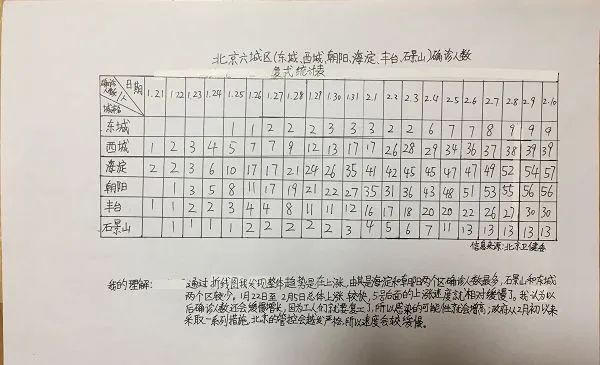 北京六城区(东城、西城、朝阳、海淀、丰台、石景山)确诊人数
复式统计表
确诊人数/人 日期 城区 1.21 1.22 1.23 1.24 1.25 1.26 1.27 1.28 1.29 1.30 1.31 2.1 2.2 2.3 2.4 2.5 2.6 2.7 2.8 2.9 2.10
东城 1 1 2 2 2 3 3 3 2 2 6 7 7 8 9 9 9
西城 1 2 3 4 5 7 7 9 12 13 17 17 26 28 29 34 36 37 38 39 39
海淀 2 2 3 6 10 17 17 21 24 26 35 41 42 45 45 47 47 49 52 54 57
朝阳 1 3 5 8 11 17 19 21 22 27 35 31 36 43 48 51 53 55 56 56
丰台 1 1 2 2 3 4 4 8 11 11 12 16 17 18 20 20 22 26 27 30 30
石景山 1 1 1 1 2 2 2 2 2 2 3 4 5 6 7 11 13 13 13 13 13
信息来源:北京卫健委
我的理解: 通过折线图我发现整体趋势是在上涨,由其是海淀和朝阳两个区确诊人数最多,石景山和东城
两个区较少。1月22日至2月5日总体上涨较快,5号后面的上涨速度就相对缓慢了。我认为以
后确诊人数还会缓慢增长,因为工人们就要复工了,所以感染的可能性就会增高;政府从2月初以来
采取一系列措施,北京的管控会越发严格,所以速度会较缓慢。